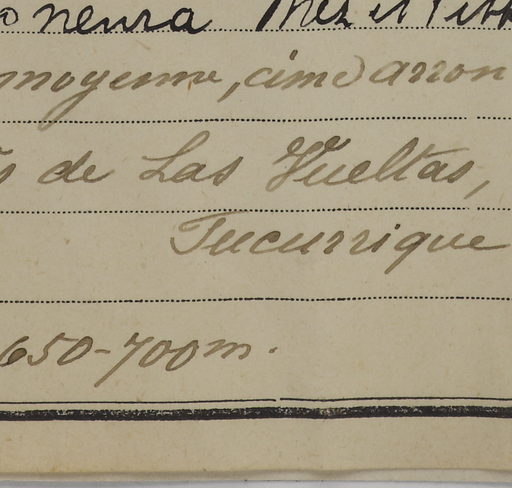 neura Mez et Pitt
moyenne, cime arron
s de Las Vueltas,
Tucurrique
650-700m.